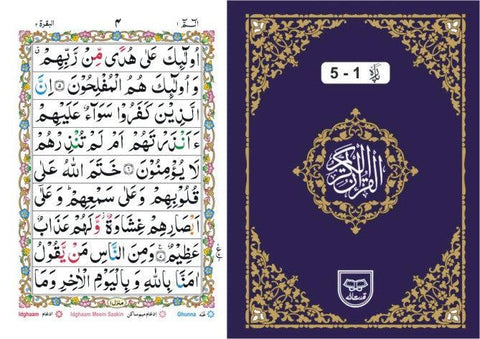 البقرة ٢
٤
الٓمّٓ ١
اُولٰٓئِكَ عَلٰى هُدًى مِّنْ رَّبِّهِمْ ۙ
وَ اُولٰٓئِكَ هُمُ الْمُفْلِحُوْنَ ۝۵ اِنَّ
الَّذِيْنَ كَفَرُوْا سَوَآءٌ عَلَيْهِمْ
ءَاَنْذَرْتَهُمْ اَمْ لَمْ تُنْذِرْهُمْ
لَا يُؤْمِنُوْنَ ۝۶ خَتَمَ اللّٰهُ عَلٰى
قُلُوْبِهِمْ وَعَلٰى سَمْعِهِمْ ؕ وَعَلٰٓى
اَبْصَارِهِمْ غِشَاوَةٌ ؗ وَّلَهُمْ عَذَابٌ
عَظِيْمٌ ۝۷ وَمِنَ النَّاسِ مَنْ يَّقُوْلُ
اٰمَنَّا بِاللّٰهِ وَ بِالْيَوْمِ الْاٰخِرِ وَمَا
منزل ١
Idghaam ادغام Idghaam Meem Saakin ادغام میم ساکن Ghunna غنه
5 - 1
القرآن الكريم